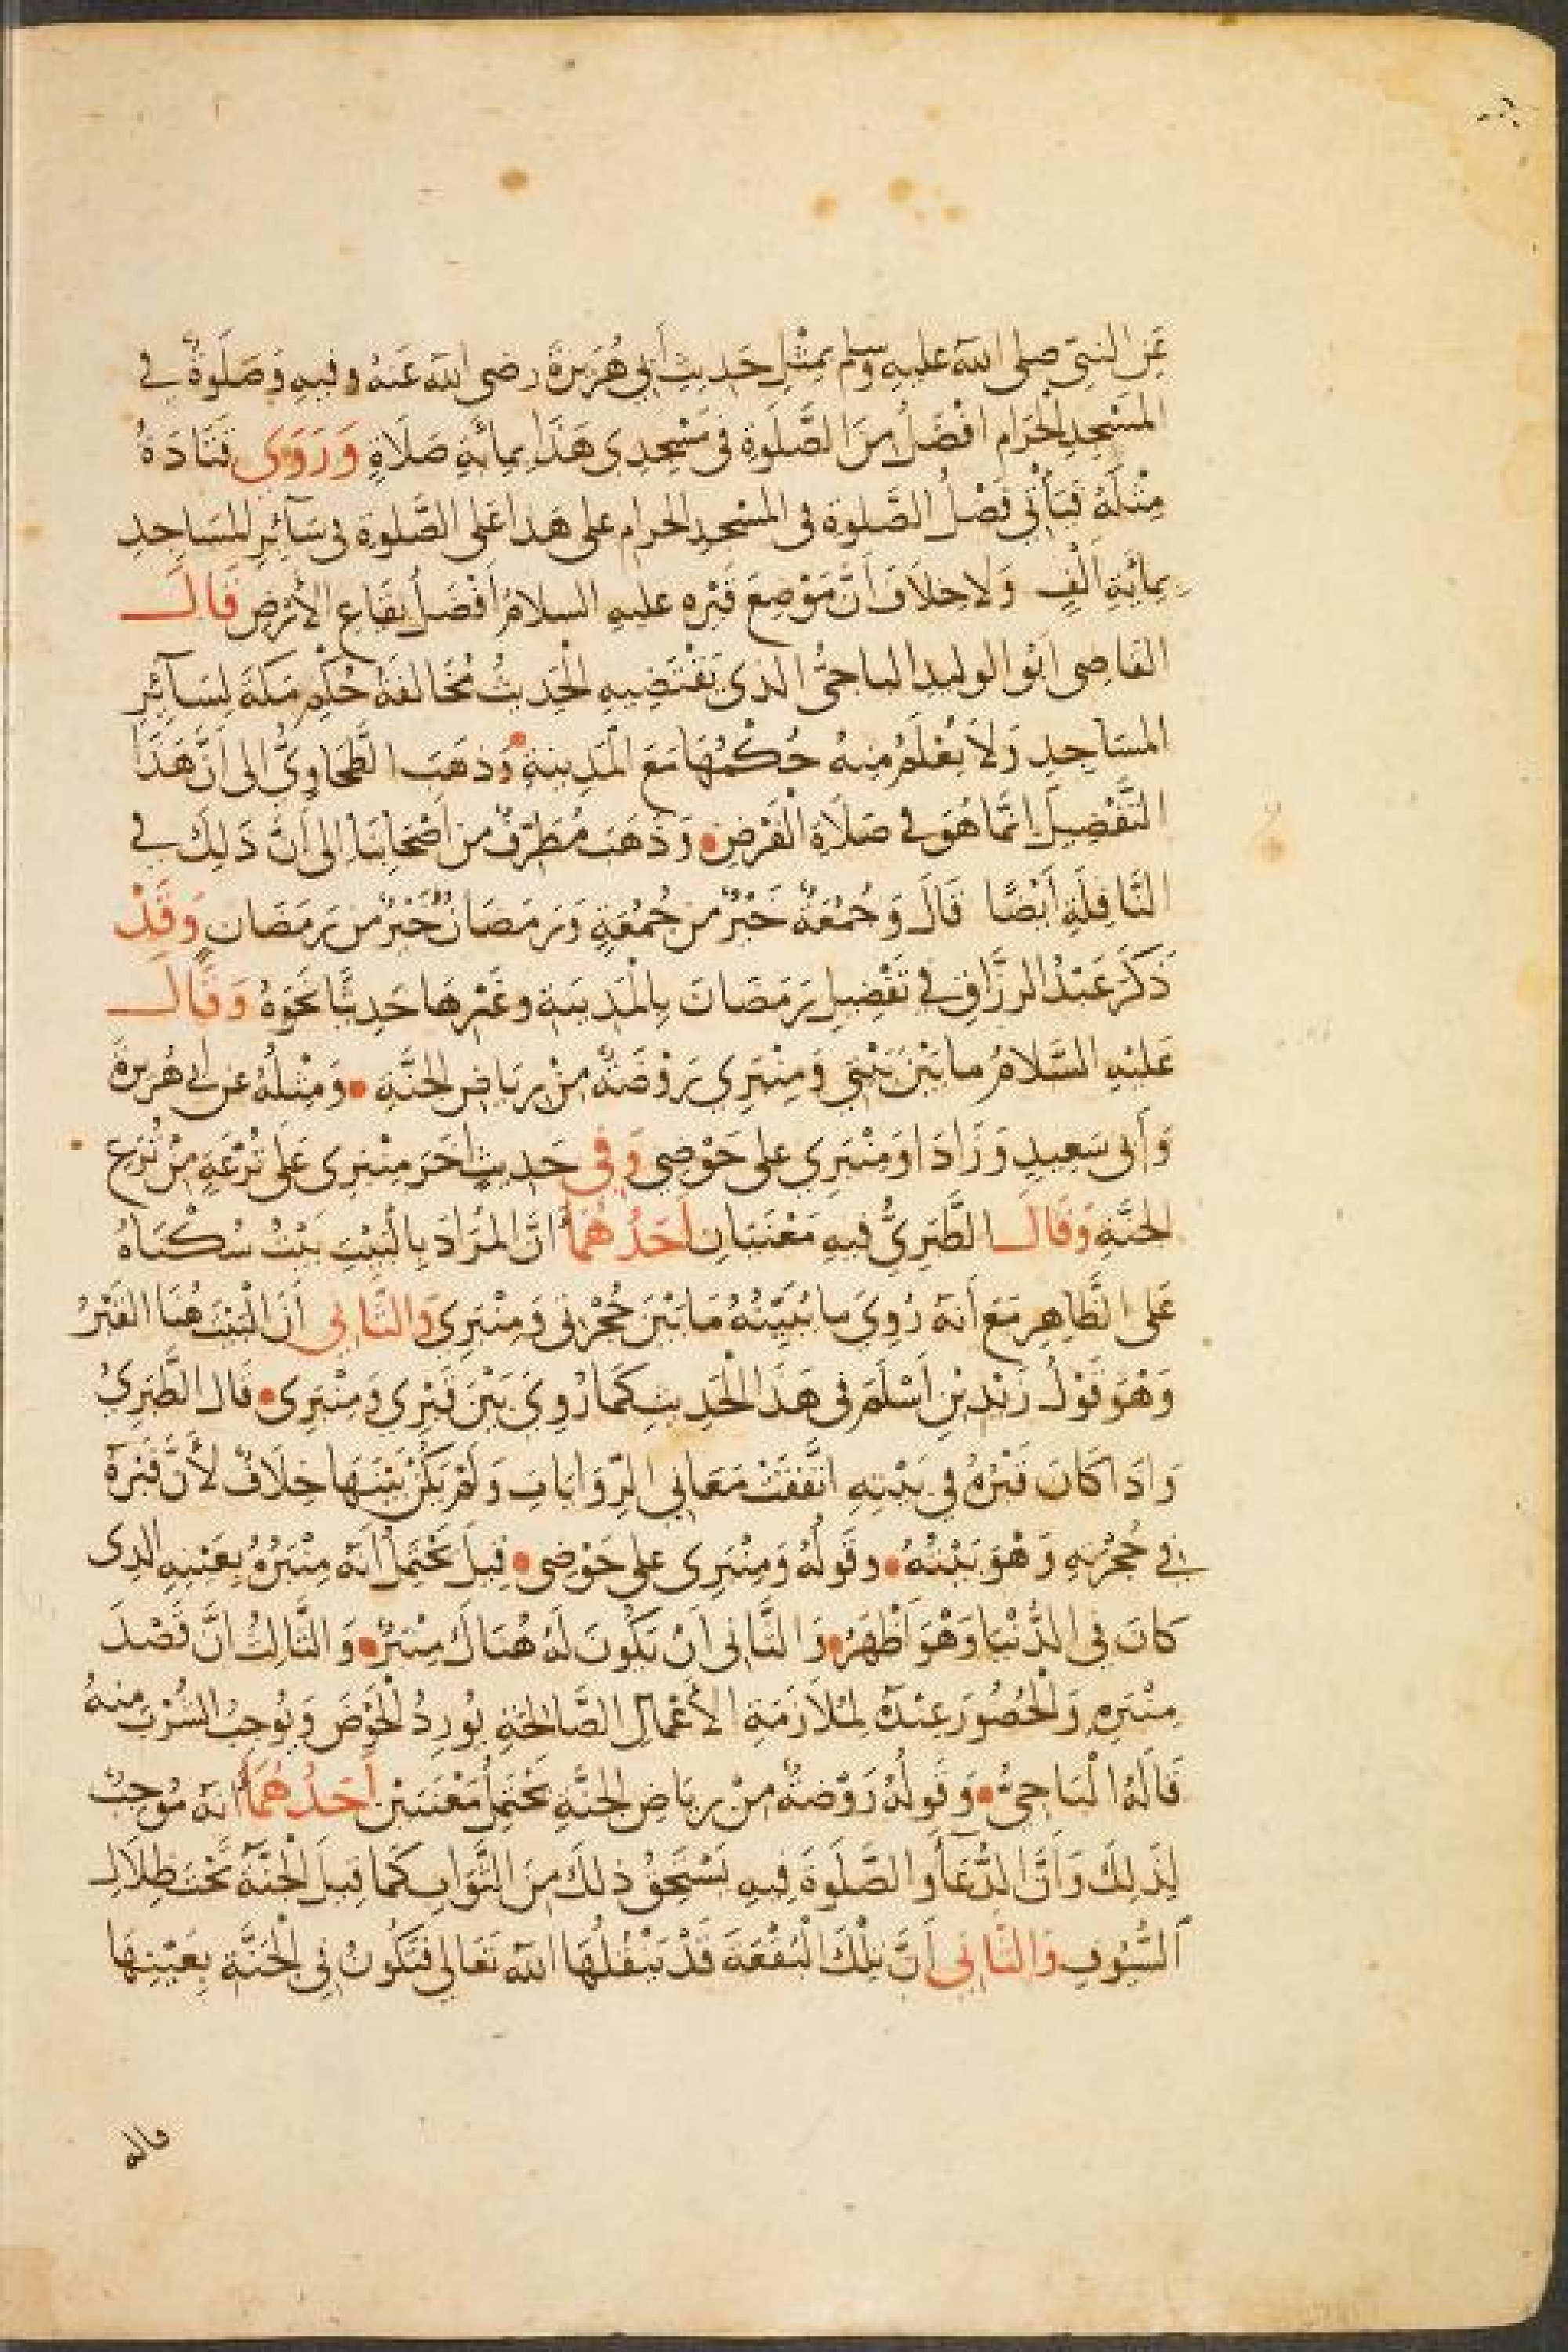 عَنِ النبيّ صلى الله عليه وسلم بمِثْلِ حَديثِ أَبي هُرَيرَةَ رضى الله عَنهُ وفيهِ وَصَلَوةٌ في
المَسْجِدِ الحَرَامِ افْضَلُ مِنَ الصَّلَوةِ في مَسْجِدِى هَذا بِمائَةِ صَلَاةٍ وَرَوَى قَتَادَةُ
مِثلَهُ فيَأتي فَضْلُ الصَّلوة في المسْجدِ الحرام على هَذا عَلى الصَّلوةِ في سَآئِرِ المسَاجِدِ
بِمائةِ اَلْفٍ وَلا خِلافَ اَنَّ مَوْضِعَ قَبْرِه عليهِ السلامُ اَفْضَلُ بِقَاعِ الأَرْضِ قَالَ
القاضى ابَوُ الوليدِ الباجىُّ الذى يَقْتَضِيهِ الْحَديثُ مُخَالَفَةُ حُكْمِ مَكَةَ لِسَآئِرِ
المسَاجِدِ وَلَا يُعْلَمُ مِنهُ حُكْمُهَا مَعَ الْمَدِينةِ وَذهَبَ الطَّحَاوِىُّ الى اَنَّ هَذا
التَّفْضِيلَ اِنَّما هُوَ في صَلَاةِ الْفَرْضِ وَذَهَبَ مُطَرِّفٌ من اَصْحَابِنَا الى اَنَّ ذَلِكَ في
النَّافِلَةِ أَيْضًا قَالَ وَجُمْعَةٌ خَيْرٌ من جُمْعَةٍ وَرَمَضَانُ خَيْرٌ من رَمَضَانٍ وَقَدْ
ذَكَرَ عَبْدُ الرزَّاقِ في تَفْضِيلِ رَمَضَانَ بِالْمَدِينَةِ وغَيْرِهَا حَدِيثًا نَحْوَهُ وَقَالَ
عَليْهِ السَّلامُ ما بَيْنَ بَيْتى وَمِنْبَرِي رَوْضَةٌ مِنْ رِيَاضِ الجنَّةِ وَمِثْلُهُ عن اَبي هُرَيرَةَ
وَأَبى سَعِيدٍ وَزَادَا وَمِنْبَرِي على حَوْضِي وَفي حَدِيثٍ اخَرَ مِنْبَرِى عَلى تُرْعَةٍ مِنْ تُرَعِ
الجنَّةِ وَقَالَ الطَّبَرِىُّ فيهِ مَعْنَيَانِ اَحَدُهُمَا اَنَّ المُرَادَ بِالْبَيْتِ بَيْتُ سُكْنَاهُ
عَلى الظَّاهِرِ مَعَ أَنهُ رُوِيَ ما يُبَيِّنُهُ مَا بَيْنَ حُجْرَتى وَمِنْبَرِى وَالثَّانِي أَنَّ الْبَيْتَ هُنَا القَبْرُ
وَهْوَ قَوْلُ زَيْدِ بْنِ اَسْلَمَ في هَذَا الْحَدِيثِ كَمَا رُوِيَ بَيْنَ قَبْرِي وَمِنْبَرِى قَالَ الطَّبَرِيُّ
وَاذَا كَانَ قَبْرُهُ في بَيْتِهِ اتَّفَقَتْ مَعَانِي الرِّوَايَاتِ وَلَمْ يَكُنْ بَيْنَهَا خِلَافٌ لأَنَّ قَبْرَهُ
في حُجْرَتِهِ وَهْوَ بَيْتُهُ وقَولُهُ وَمِنْبَرِى على حَوْضِى قِيلَ يَحْتَمِلُ اَنهُ مِنْبَرُهُ بِعَيْنِهِ الذِى
كانَ في الدُّنْيَا وَهْوَ اَظْهَرُ وَالثَّانى اَنْ يَكُونَ لَهُ هُنَاكَ مِنْبَرٌ وَالثَّالِثُ اَنَّ قَصْدَ
مِنْبَرِهِ وَالْحُضُورَ عِنْدَهُ لِمُلَازَمَةِ الأَعْمَالِ الصَّالِحَةِ يُورِدُ الْحَوْضَ وَيُوجِبُ الشُّرْبَ مِنهُ
قَالَهُ الْبَاجِىُّ وَقَولُهُ رَوْضَةٌ مِنْ رِيَاضِ الجنَّةِ يَحْتَمِلُ مَعْنَيَيْنِ أَحَدُهُمَا اَنهُ مُوجِبٌ
لِذَلِكَ وَاَنَّ الدُّعَآ وَالصَّلَوةَ فِيهِ يَسْتَحِقُّ ذلكَ مِنَ الثَّوَابِ كَمَا قِيلَ الْجَنَّةُ تَحْتَ ظِلَالِ
السُّيُوفِ وَالثَّانِي أَنَّ تِلْكَ الْبُقْعَةَ قَدْ يَنْقُلُهَا اللهُ تَعَالى فَتَكُونُ في الْجَنَّةِ بِعَيْنِهَا
قاله